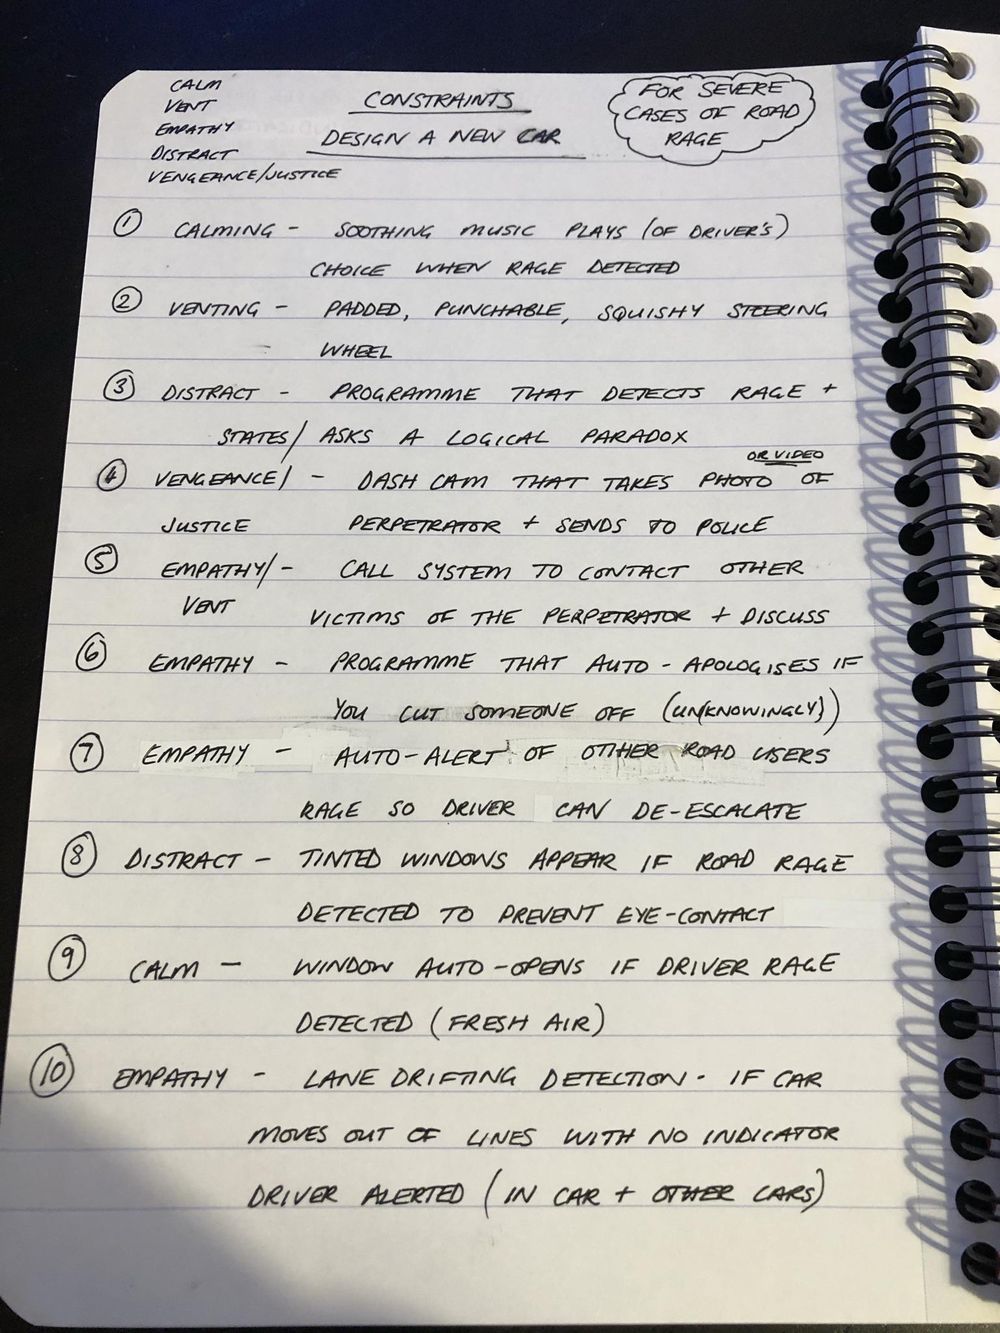 CALM
VENT
EMPATHY
DISTRACT
VENGEANCE/JUSTICE
CONSTRAINTS
DESIGN A NEW CAR
FOR SEVERE
CASES OF ROAD
RAGE
① CALMING - SOOTHING MUSIC PLAYS (OF DRIVER'S)
CHOICE WHEN RAGE DETECTED
② VENTING - PADDED, PUNCHABLE, SQUISHY STEERING
WHEEL
③ DISTRACT - PROGRAMME THAT DETECTS RAGE +
STATES/ ASKS A LOGICAL PARADOX
OR VIDEO
④ VENGEANCE/ - DASH CAM THAT TAKES PHOTO OF
JUSTICE PERPETRATOR + SENDS TO POLICE
⑤ EMPATHY/ - CALL SYSTEM TO CONTACT OTHER
VENT VICTIMS OF THE PERPETRATOR + DISCUSS
⑥ EMPATHY - PROGRAMME THAT AUTO-APOLOGISES IF
YOU CUT SOMEONE OFF (UN(KNOWINGLY))
⑦ EMPATHY - AUTO-ALERT OF OTHER ROAD USERS
RAGE SO DRIVER CAN DE-ESCALATE
⑧ DISTRACT - TINTED WINDOWS APPEAR IF ROAD RAGE
DETECTED TO PREVENT EYE-CONTACT
⑨ CALM - WINDOW AUTO-OPENS IF DRIVER RAGE
DETECTED (FRESH AIR)
⑩ EMPATHY - LANE DRIFTING DETECTION - IF CAR
MOVES OUT OF LINES WITH NO INDICATOR
DRIVER ALERTED (IN CAR + OTHER CARS)